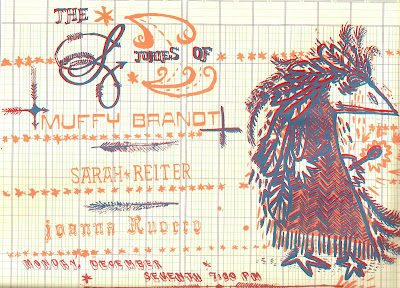 THE STORIES OF
MUFFY BRANDT
SARAH + REITER
joanna Ruocco
MONDAY, DECEMBER
SEVENTH 7:30 PM